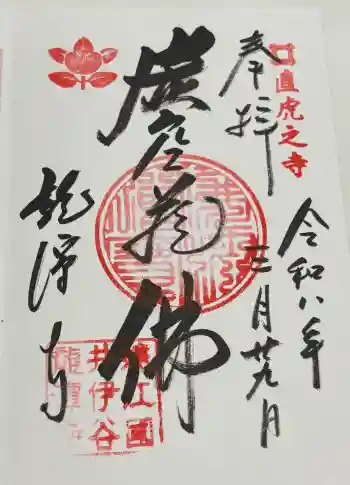 奉拝
直虎之寺
令和八年
三月廿九日
虚空蔵佛
龍潭寺
遠江國
井伊谷
龍潭寺